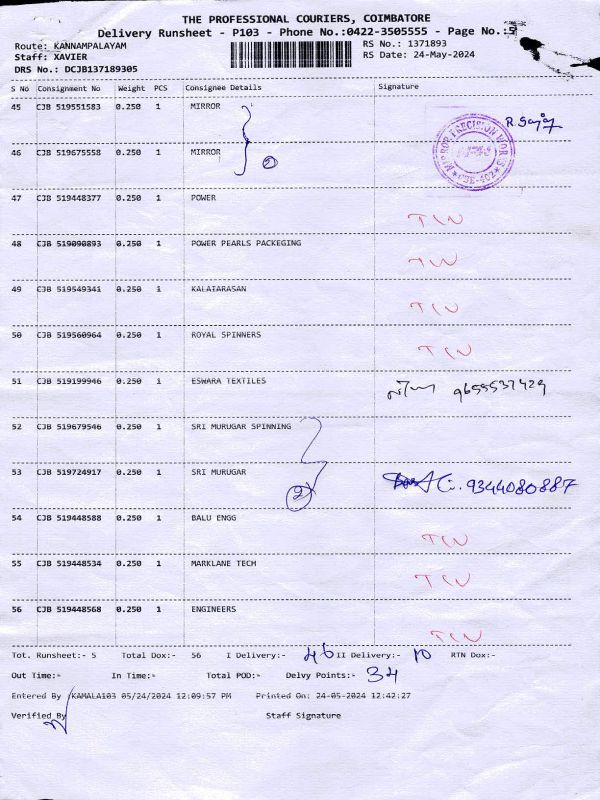 THE PROFESSIONAL COURIERS, COIMBATORE
Delivery Runsheet - P103 - Phone No.:0422-3505555 - Page No.:5
Route: KANNAMPALAYAM RS No.: 1371893
Staff: XAVIER RS Date: 24-May-2024
DRS No.: DCJB137189305
S No Consignment No Weight PCS Consignee Details Signature
45 CJB 519551583 0.250 1 MIRROR
MIRROR PRECISION WORKS
46 CJB 519675558 0.250 1 MIRROR 2
47 CJB 519448377 0.250 1 POWER
TIN
48 CJB 519090893 0.250 1 POWER PEARLS PACKEGING
TIN
49 CJB 519549341 0.250 1 KALAIARASAN
TIN
50 CJB 519560964 0.250 1 ROYAL SPINNERS
TIN
51 CJB 519199946 0.250 1 ESWARA TEXTILES
9655537429
52 CJB 519679546 0.250 1 SRI MURUGAR SPINNING
53 CJB 519724917 0.250 1 SRI MURUGAR
2 9344080887
54 CJB 519448588 0.250 1 BALU ENGG
TIN
55 CJB 519448534 0.250 1 MARKLANE TECH
TIN
56 CJB 519448568 0.250 1 ENGINEERS
TIN
Tot. Runsheet:- 5 Total Dox:- 56 I Delivery:- 46 II Delivery:- 10 RTN Dox:-
Out Time:- In Time:- Total POD:- Delvy Points:- 34
Entered By :KAMALA103 05/24/2024 12:09:57 PM Printed On: 24-05-2024 12:42:27
Verified By Staff Signature